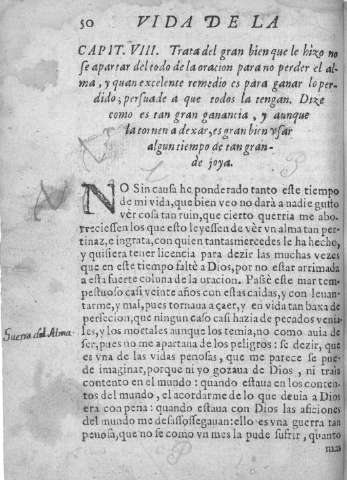 50 VIDA DE LA
CAPIT. VIII. Trata del gran bien que le hizo no
se apartar del todo de la oracion para no perder el al-
ma, y quan excelente remedio es para ganar lo per-
dido; persuade a que todos la tengan. Dize
como es tan gran ganancia, y aunque
la tornen a dexar, es gran bien vsar
algun tiempo de tan gran-
de joya.
NO Sin causa he ponderado tanto este tiempo
de mi vida, que bien veo no darà a nadie gusto
vèr cosa tan ruin, que cierto querria me abo-
rreciessen los que esto leyessen de vèr vn alma tan per-
tinaz, e ingrata, con quien tantas mercedes le ha hecho,
y quisiera tener licencia para dezir las muchas vezes
que en este tiempo faltè a Dios, por no estar arrimada
a esta fuerte coluna de la oracion. Passè este mar tem-
pestuoso casi veinte años con estas caidas, y con leuan-
tarme, y mal, pues tornaua a çaer, y en vida tan baxa de
perfeccion, que ningun caso casi hazia de pecados venia-
les, y los mortales aunque los temia, no como auia de
ser, pues no me apartaua de los peligros: se dezir, que
es vna de las vidas penosas, que me parece se pue-
de imaginar, porque ni yo gozaua de Dios, ni traìa
contento en el mundo: quando estaua en los conten-
tos del mundo, el acordarme de lo que deuia a Dios
era con pena: quando estaua con Dios las aficiones
del mundo me desassossegauan: ello es vna guerra tan
penosa, que no se como vn mes la pude sufrir, quanto
mas
Guerra del Alma.